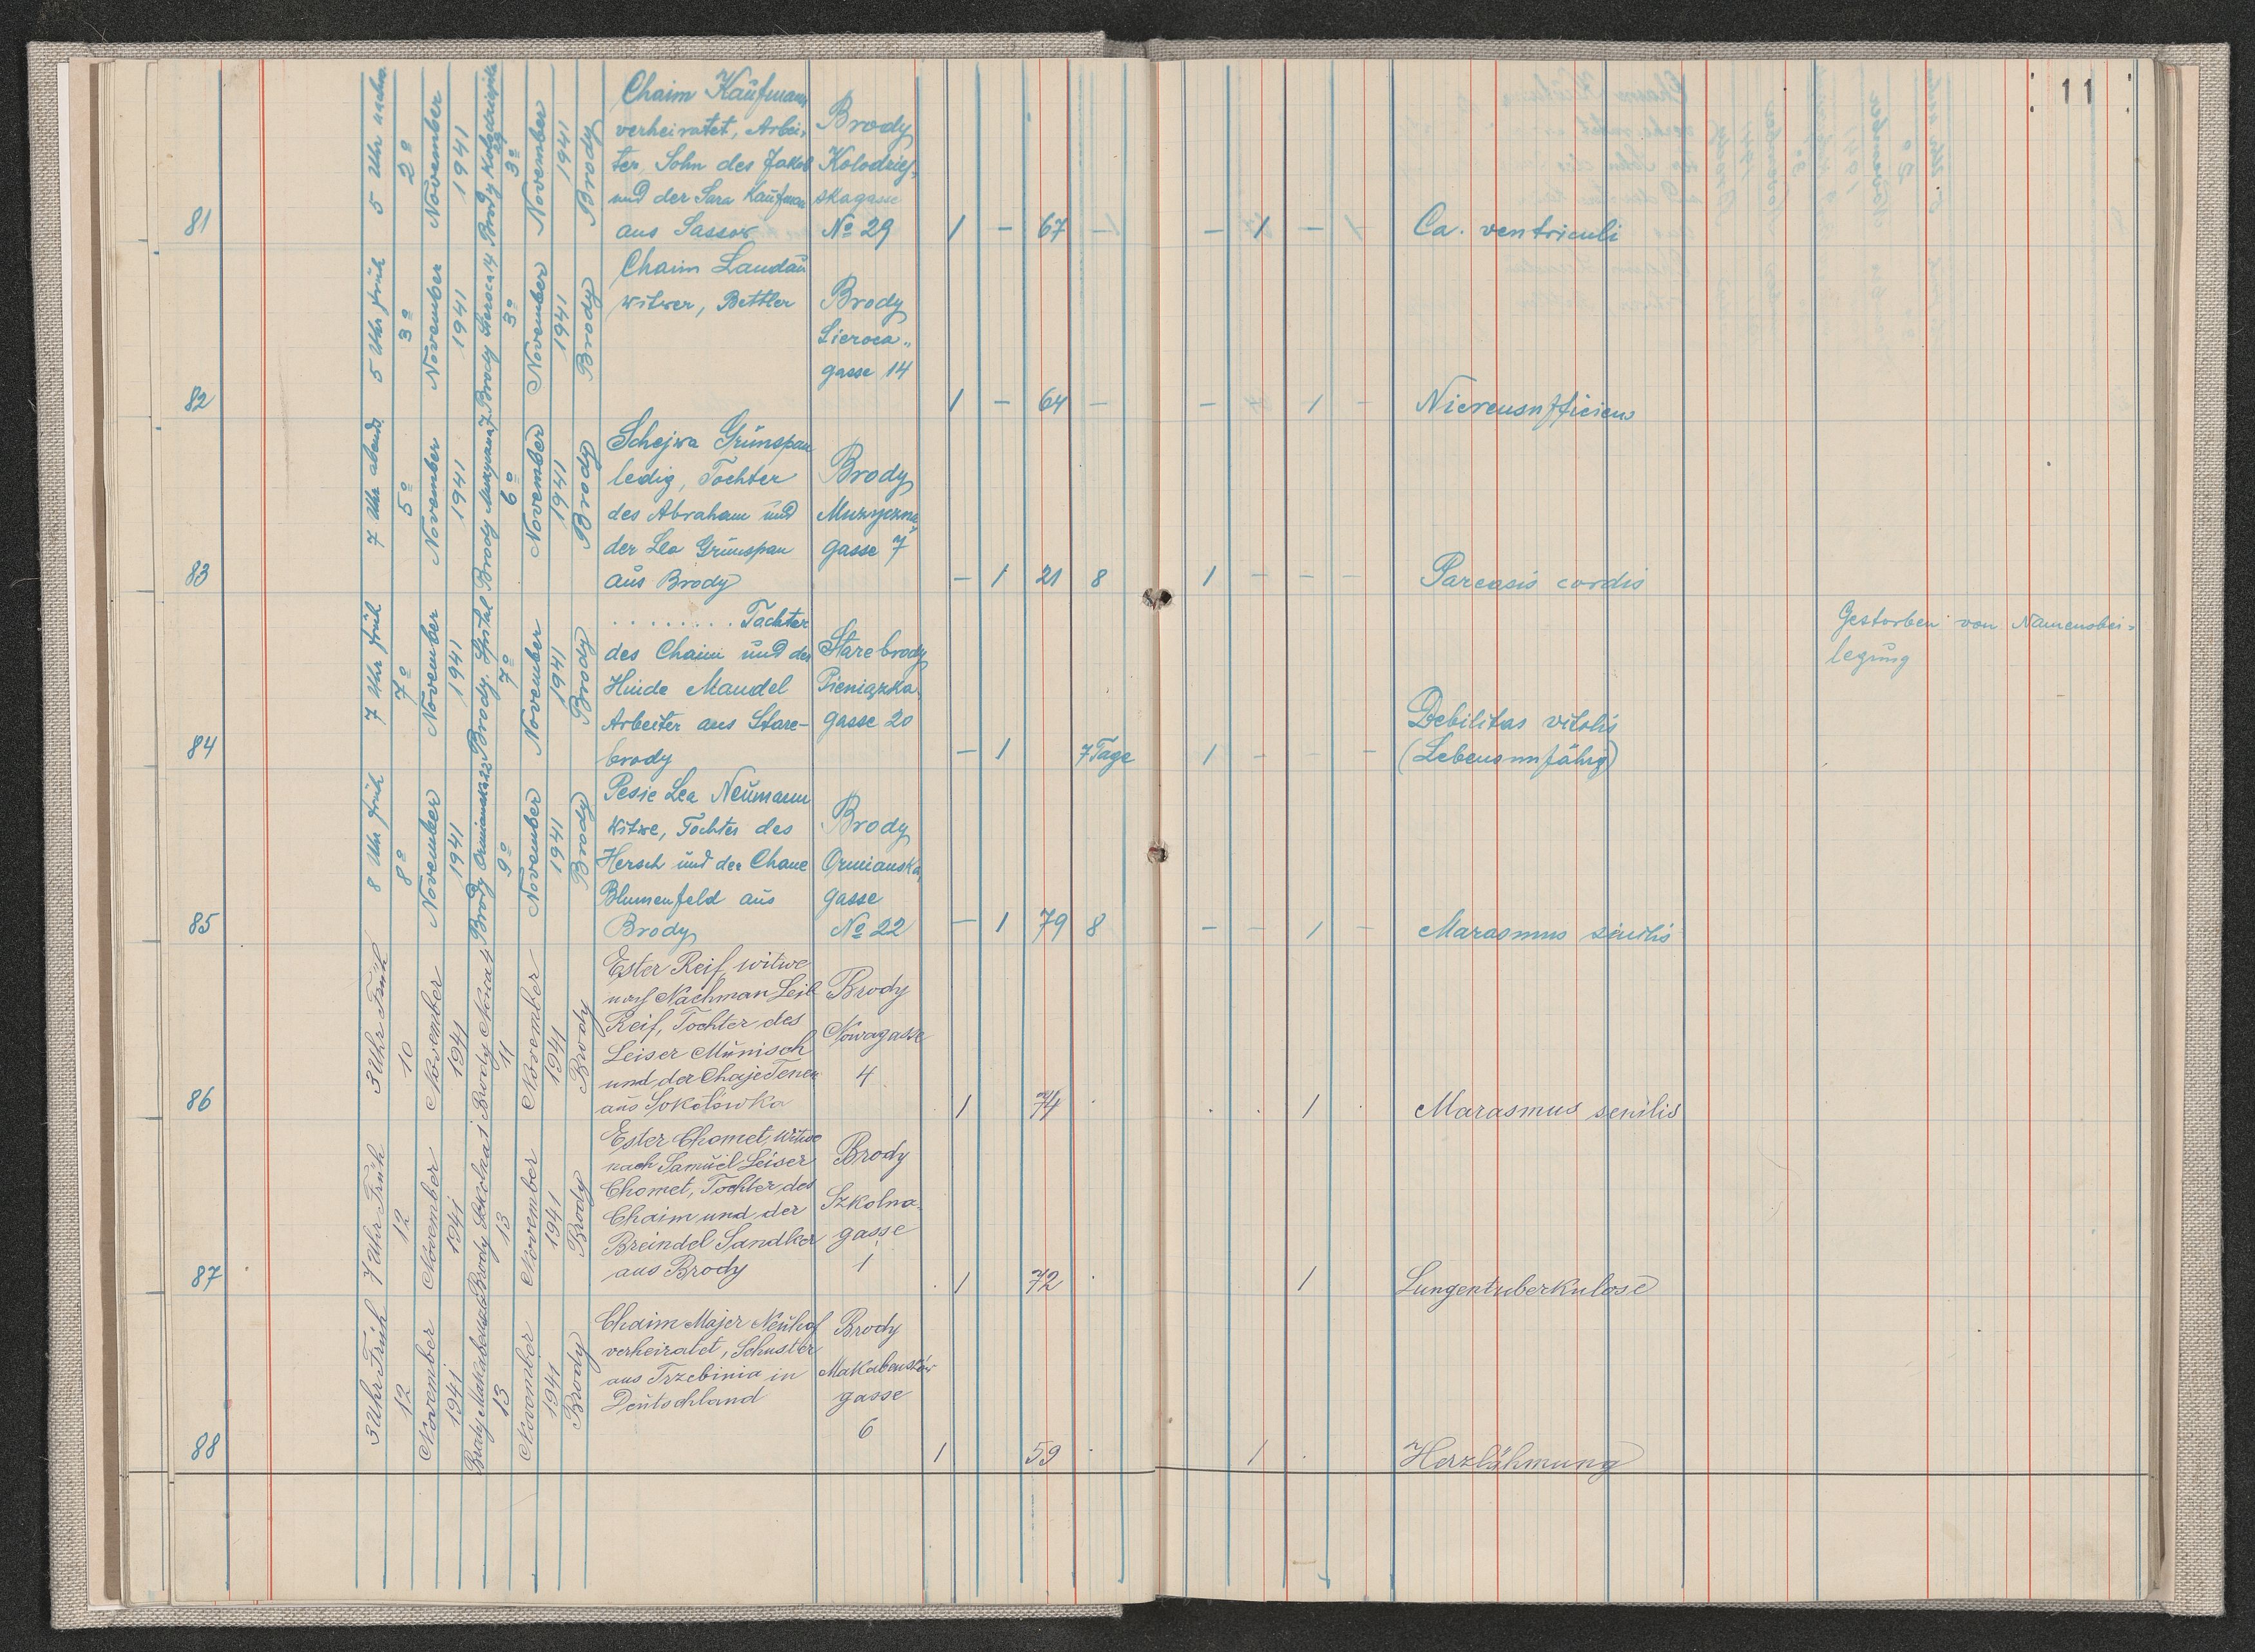 11
81
5 Uhr nachm.
2º
November
1941
Brody Kolodziejska
29
3º
November
1941
Brody
Chaim Kaufmann
verheiratet, Arbei-
ter, Sohn des Jakob
und der Sara Kaufman
aus Sassow
Brody
Kolodziej-
skagasse
Nº 29
1 – 67 –
– 1 – –
Ca. ventriculi
82
5 Uhr früh
3º
November
1941
Brody Sieroca 14
3º
November
1941
Brody
Chaim Landau
witwer, Bettler
Brody
Sieroca"
gasse 14
1 – 64 –
– 1 –
Niereusnfficiens
83
7 Uhr abends
5º
November
1941
Brody Muzyczna 7
6º
November
1941
Brody
Schejwa Grünspan
ledig, Tochter
des Abraham und
der Lea Grünspan
aus Brody
Brody
Muzyczna
gasse 7
– 1 21 8
1 – – –
Pareasis cordis
84
7 Uhr früh
7º
November
1941
Brody, Spital
7º
November
1941
Brody
. . . . . . . . Tochter
des Chaim und der
Hinde Mandel
Arbeiter aus Stare-
brody
Starebrody
Pieniązka
gasse 20
– 1 7 Tage
1 – – –
Debilitas vitalis
(Lebensunfähig)
Gestorben vor Namensbei-
legung
85
8 Uhr früh
8º
November
1941
Brody Ormianska 22
9º
November
1941
Brody
Pesie Lea Neumann
Witwe, Tochter des
Hersch und der Chane
Blumenfeld aus
Brody
Brody
Ormianska
gasse
Nº 22
– 1 79 8
– – 1 –
Marasmus sinilis
86
3 Uhr Früh
10
November
1941
Brody Nowa 4
11
November
1941
Brody
Ester Reif, witwe
nach Nachman Leib
Reif, Tochter des
Leiser Münisch
und der Chaje Tenen
aus Sokołówka
Brody
Nowagasse
4
1 74
1
Marasmus senilis
87
7 Uhr Früh
12
November
1941
Brody Szkolna 1
13
November
1941
Brody
Ester Chomet, Witwe
nach Samuel Leiser
Chomet, Tochter des
Chaim und der
Breindel Sandker
aus Brody
Brody
Szkolna
gasse
1
1 72
1
Lungentuberkulose
88
3 Uhr Früh
12
November
1941
13
November
1941
Brody
Chaim Majer Neuhof
verheiratet, Schuster
aus Trzebinia in
Deutschland
Brody
Makabeusków
gasse
6
1 59
1
Herzlähmung